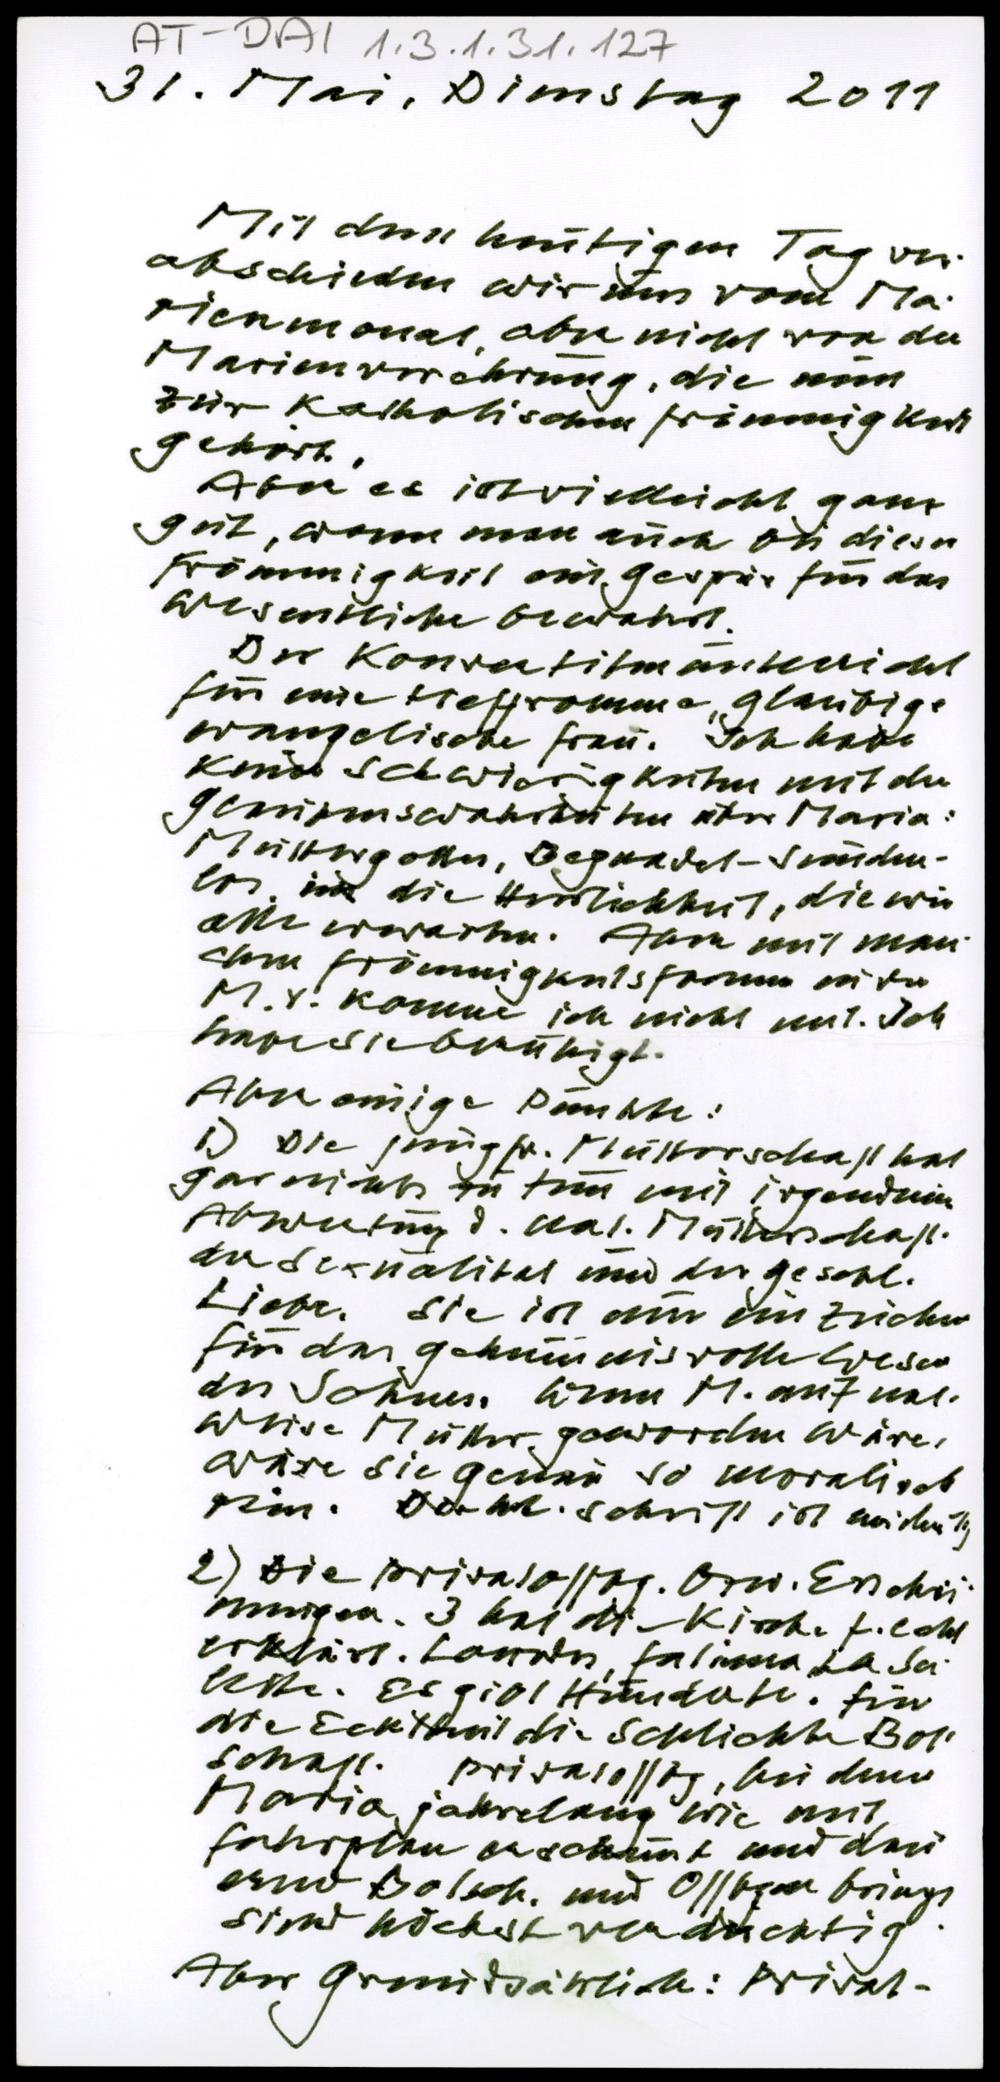 AT-DAI 1.3.1.31.127
31. Mai, Dienstag 2011
Mit dem heutigen Tag ver-
abschieden wir uns vom Ma-
rienmonat, aber nicht von der
Marienverehrung, die nun
zur Katholischen Frömmigkeit
gehört.
Aber es ist vielleicht ganz
gut, wenn man auch bei dieser
Frömmigkeit ein Gespür für das
Wesentliche bewahrt.
Der Konvertitenunterricht
für eine tieffromme, gläubige
evangelische Frau. Ich habe
keine Schwierigkeiten mit den
Glaubenswahrheiten über Maria:
Muttergottes, Begnadet - Sünden-
los, in die Herrlichkeit, die wir
alle erwarten. Aber mit man-
chen Frömmigkeitsformen in der
M.V. komme ich nicht mit. Ich
habe sie beruhigt.
Aber einige Punkte:
1) Die jungfr. Mutterschaft hat
gar nichts zu tun mit irgendeiner
Abwertung d. nat. Mutterschaft.
der Sexualität und der geschl.
Liebe. Sie ist nur ein Zeichen
für das geheimnisvolle Wesen
des Sohnes. Wenn M. auf nat.
Weise Mutter geworden wäre,
wäre sie genau so moralisch
rein. Die hl. Schrift ist eindeutig
2) Die Privatoffbg. bzw. Erschei-
nungen. 3 hat die Kirche f. echt
erklärt. Lourdes, Fatima, La Sa-
lette. Es gibt Hunderte. Für
die Echtheit die schlichte Bot-
schaft. Privatoffbg, bei denen
Maria jahrelang wie mit
Fahrplan erscheint und dau-
ernd Botsch. und Offbgen bringt
sind höchst verdächtig.
Aber Grundsätzlich: Privat-